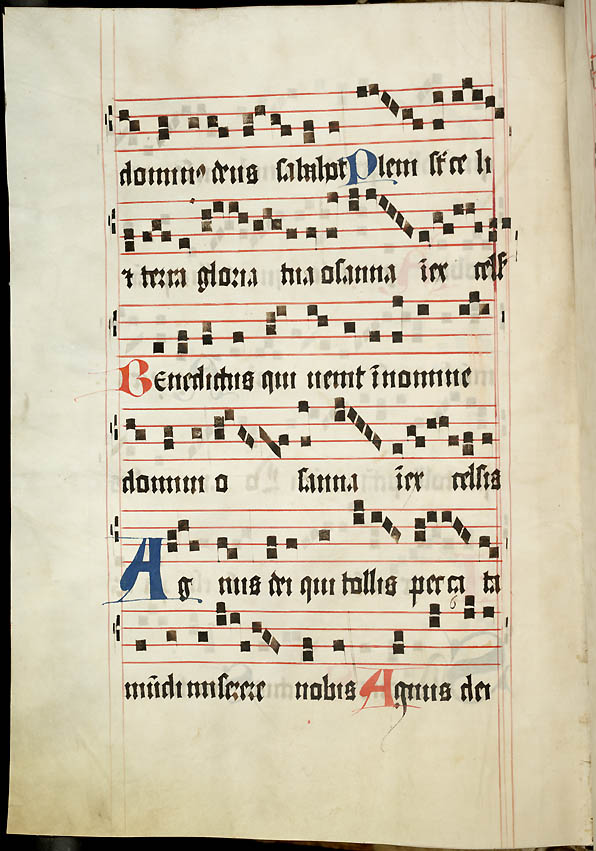 dominꝰ deus sabahot Pleni sūt celi
⁊ terra gloria tua osanna īex celsis
Benedictus qui uenit īnomine
domini o sanna īex celsis
Ag nus dei qui tollis pecca ta
mūdi miserere nobis Agnus dei